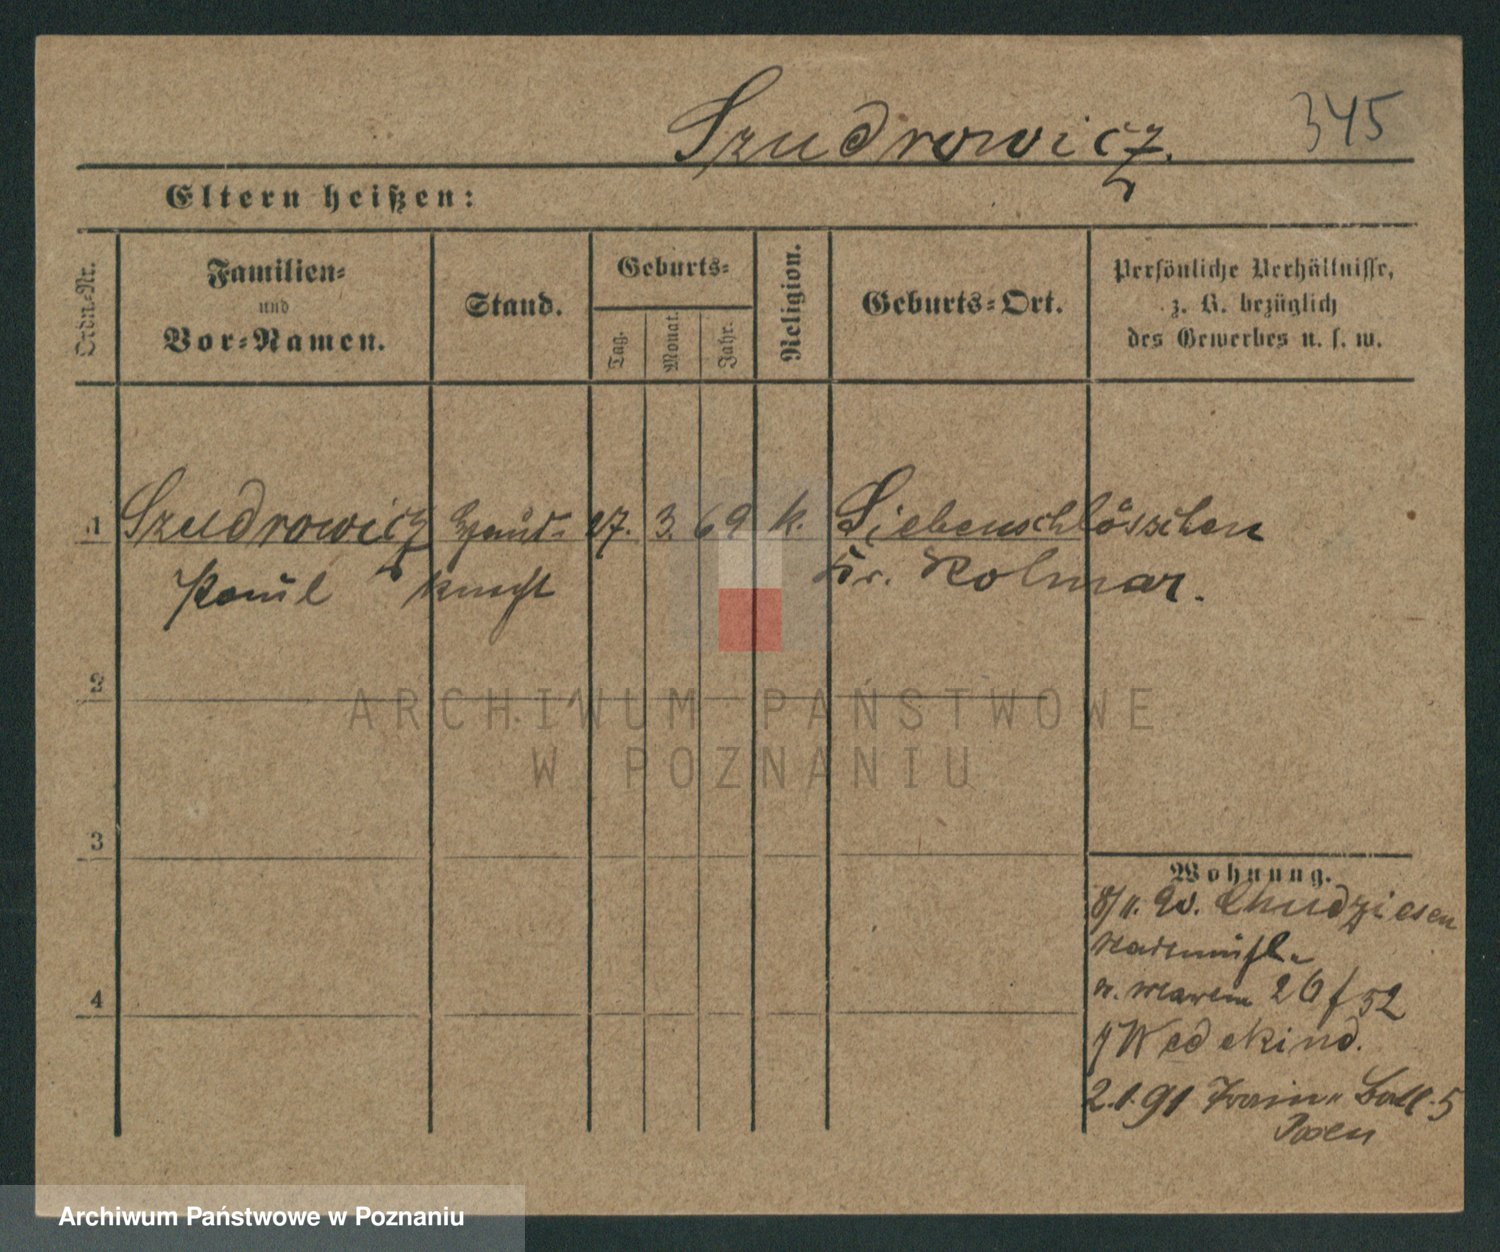 Szudrowicz.
345
Eltern heißen:
Ordn.-Nr.
Familien-
und
Vor-Namen.
Stand.
Geburts-
Tag.
Monat.
Jahr.
Religion.
Geburts-Ort.
Persönliche Verhältnisse,
z. B. bezüglich
des Gewerbes u. s. w.
1 Szudrowicz Haus- 27. 3. 69 k. Siebenschlösschen
Paul knecht Kr. Kolmar.
2
3
4
Wohnung.
8/11. 90. Chudziesen
26/52
Wedekind.
2.1.91 Train- Batl. 5
Posen
ARCHIWUM PAŃSTWOWE
W POZNANIU
Archiwum Państwowe w Poznaniu